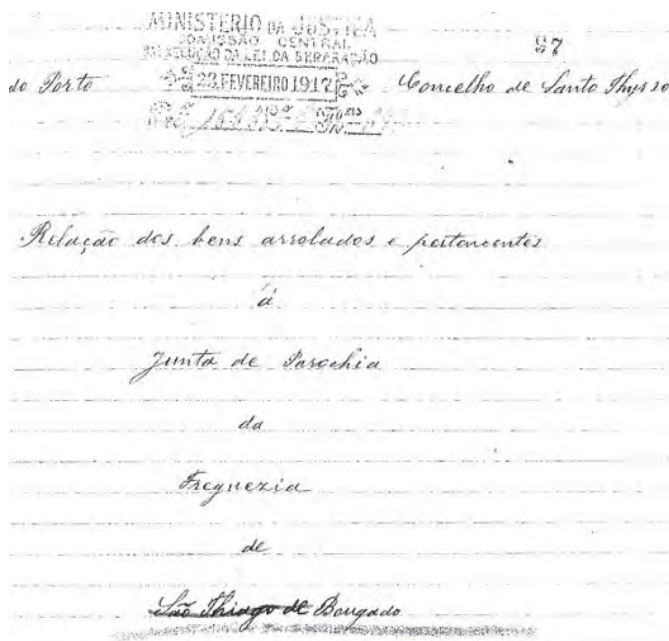 MINISTERIO DA JUSTIÇA
COMISSÃO CENTRAL
DA LEI DA SEPARAÇÃO
67
do Porto
23. FEVEREIRO 1917
Concelho de Santo Thyrso
Relação dos bens arrolados e pertencentes
á
Junta de Parochia
da
Freguezia
de
São Thiago de Bougado